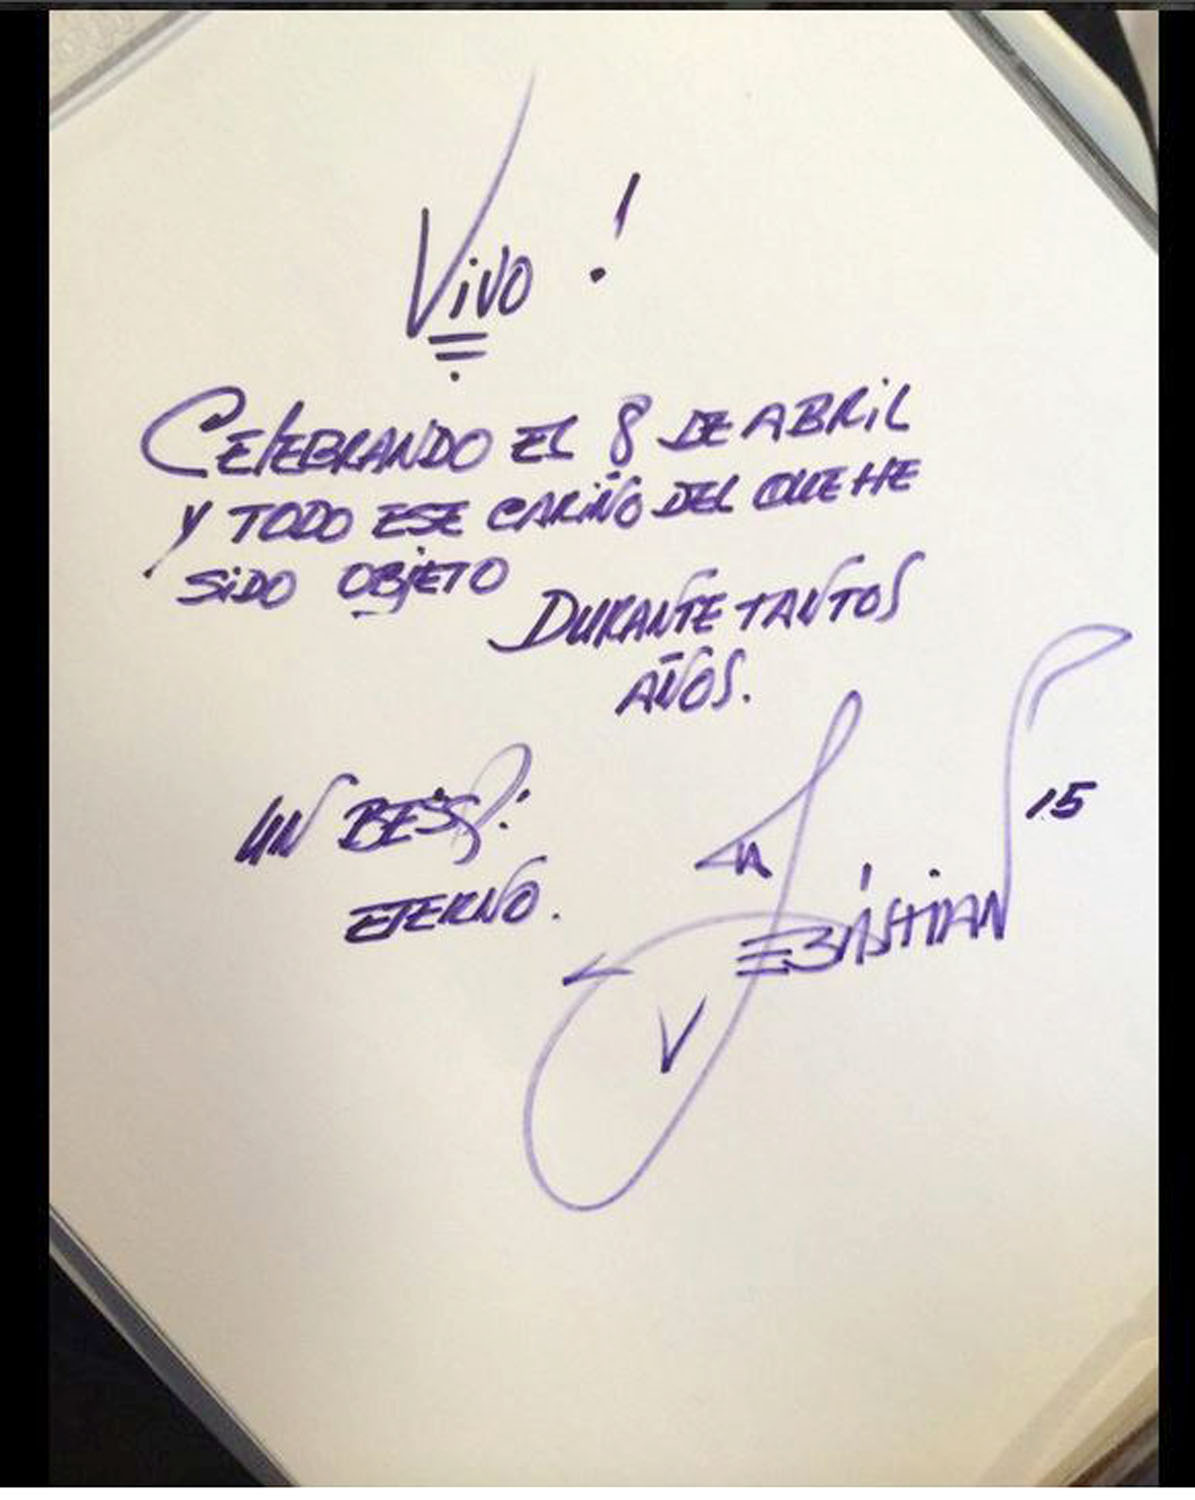 Vivo !
CELEBRANDO EL 8 DE ABRIL
Y TODO ESE CARIÑO DEL QUE HE
SiDO OBJETO
DURANTE TANTOS
AÑOS.
UN BESO:
ETERNO.
15
SEBASTIAN
V